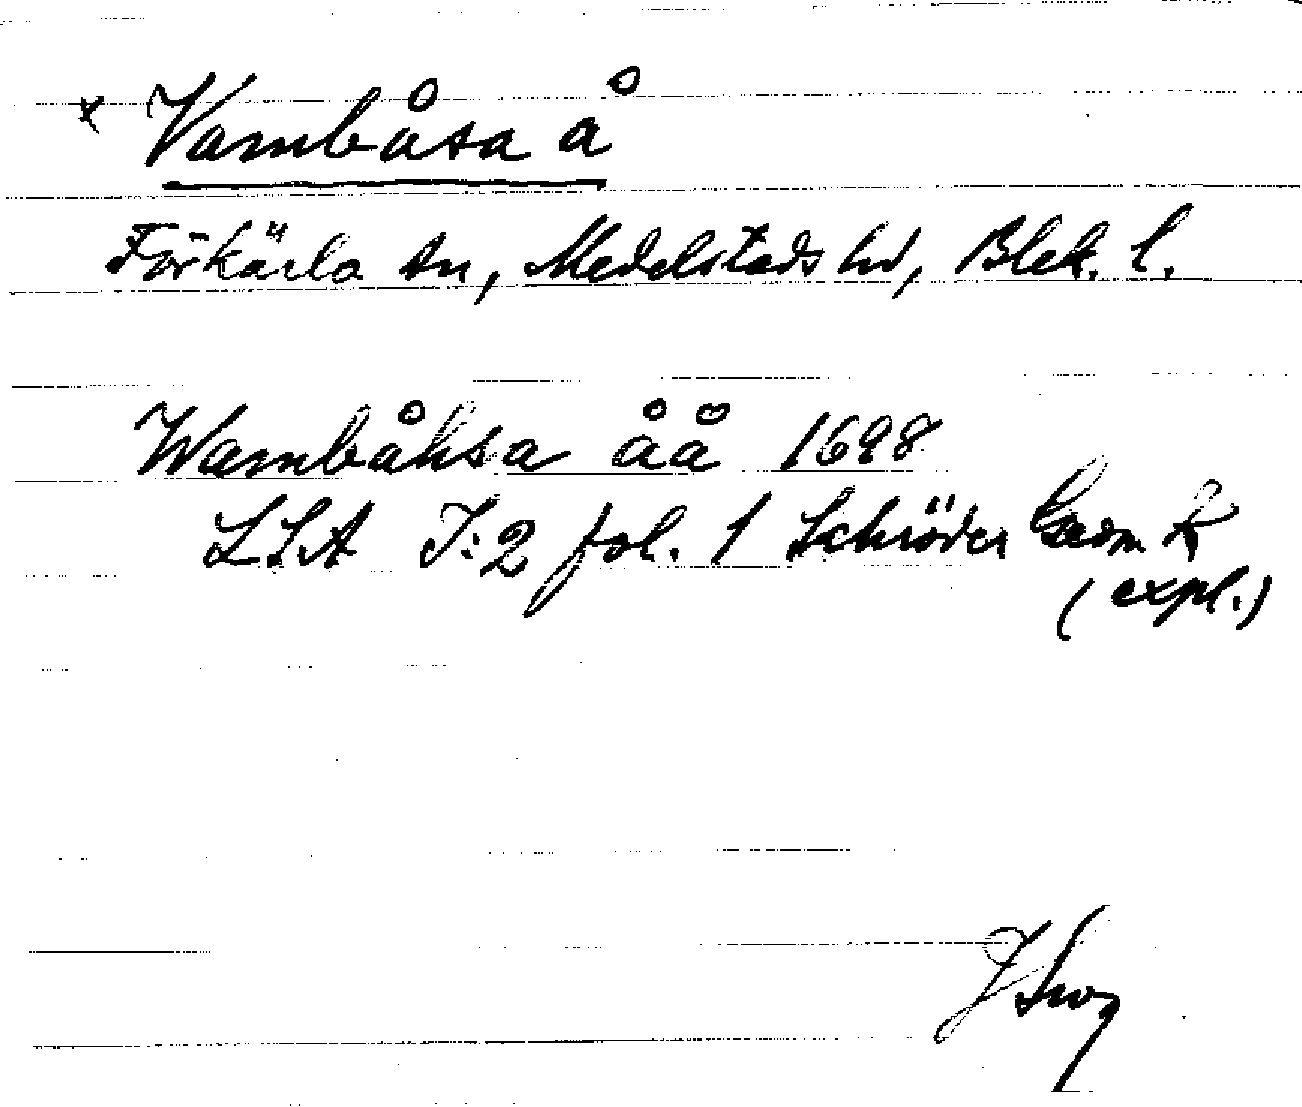 x Vambåsa å
Förkärla sn, Medelstads hd, Blek. l.
Wambåhsa åå 1698
LSA I:2 fol. 1 Schröder
(expl.)